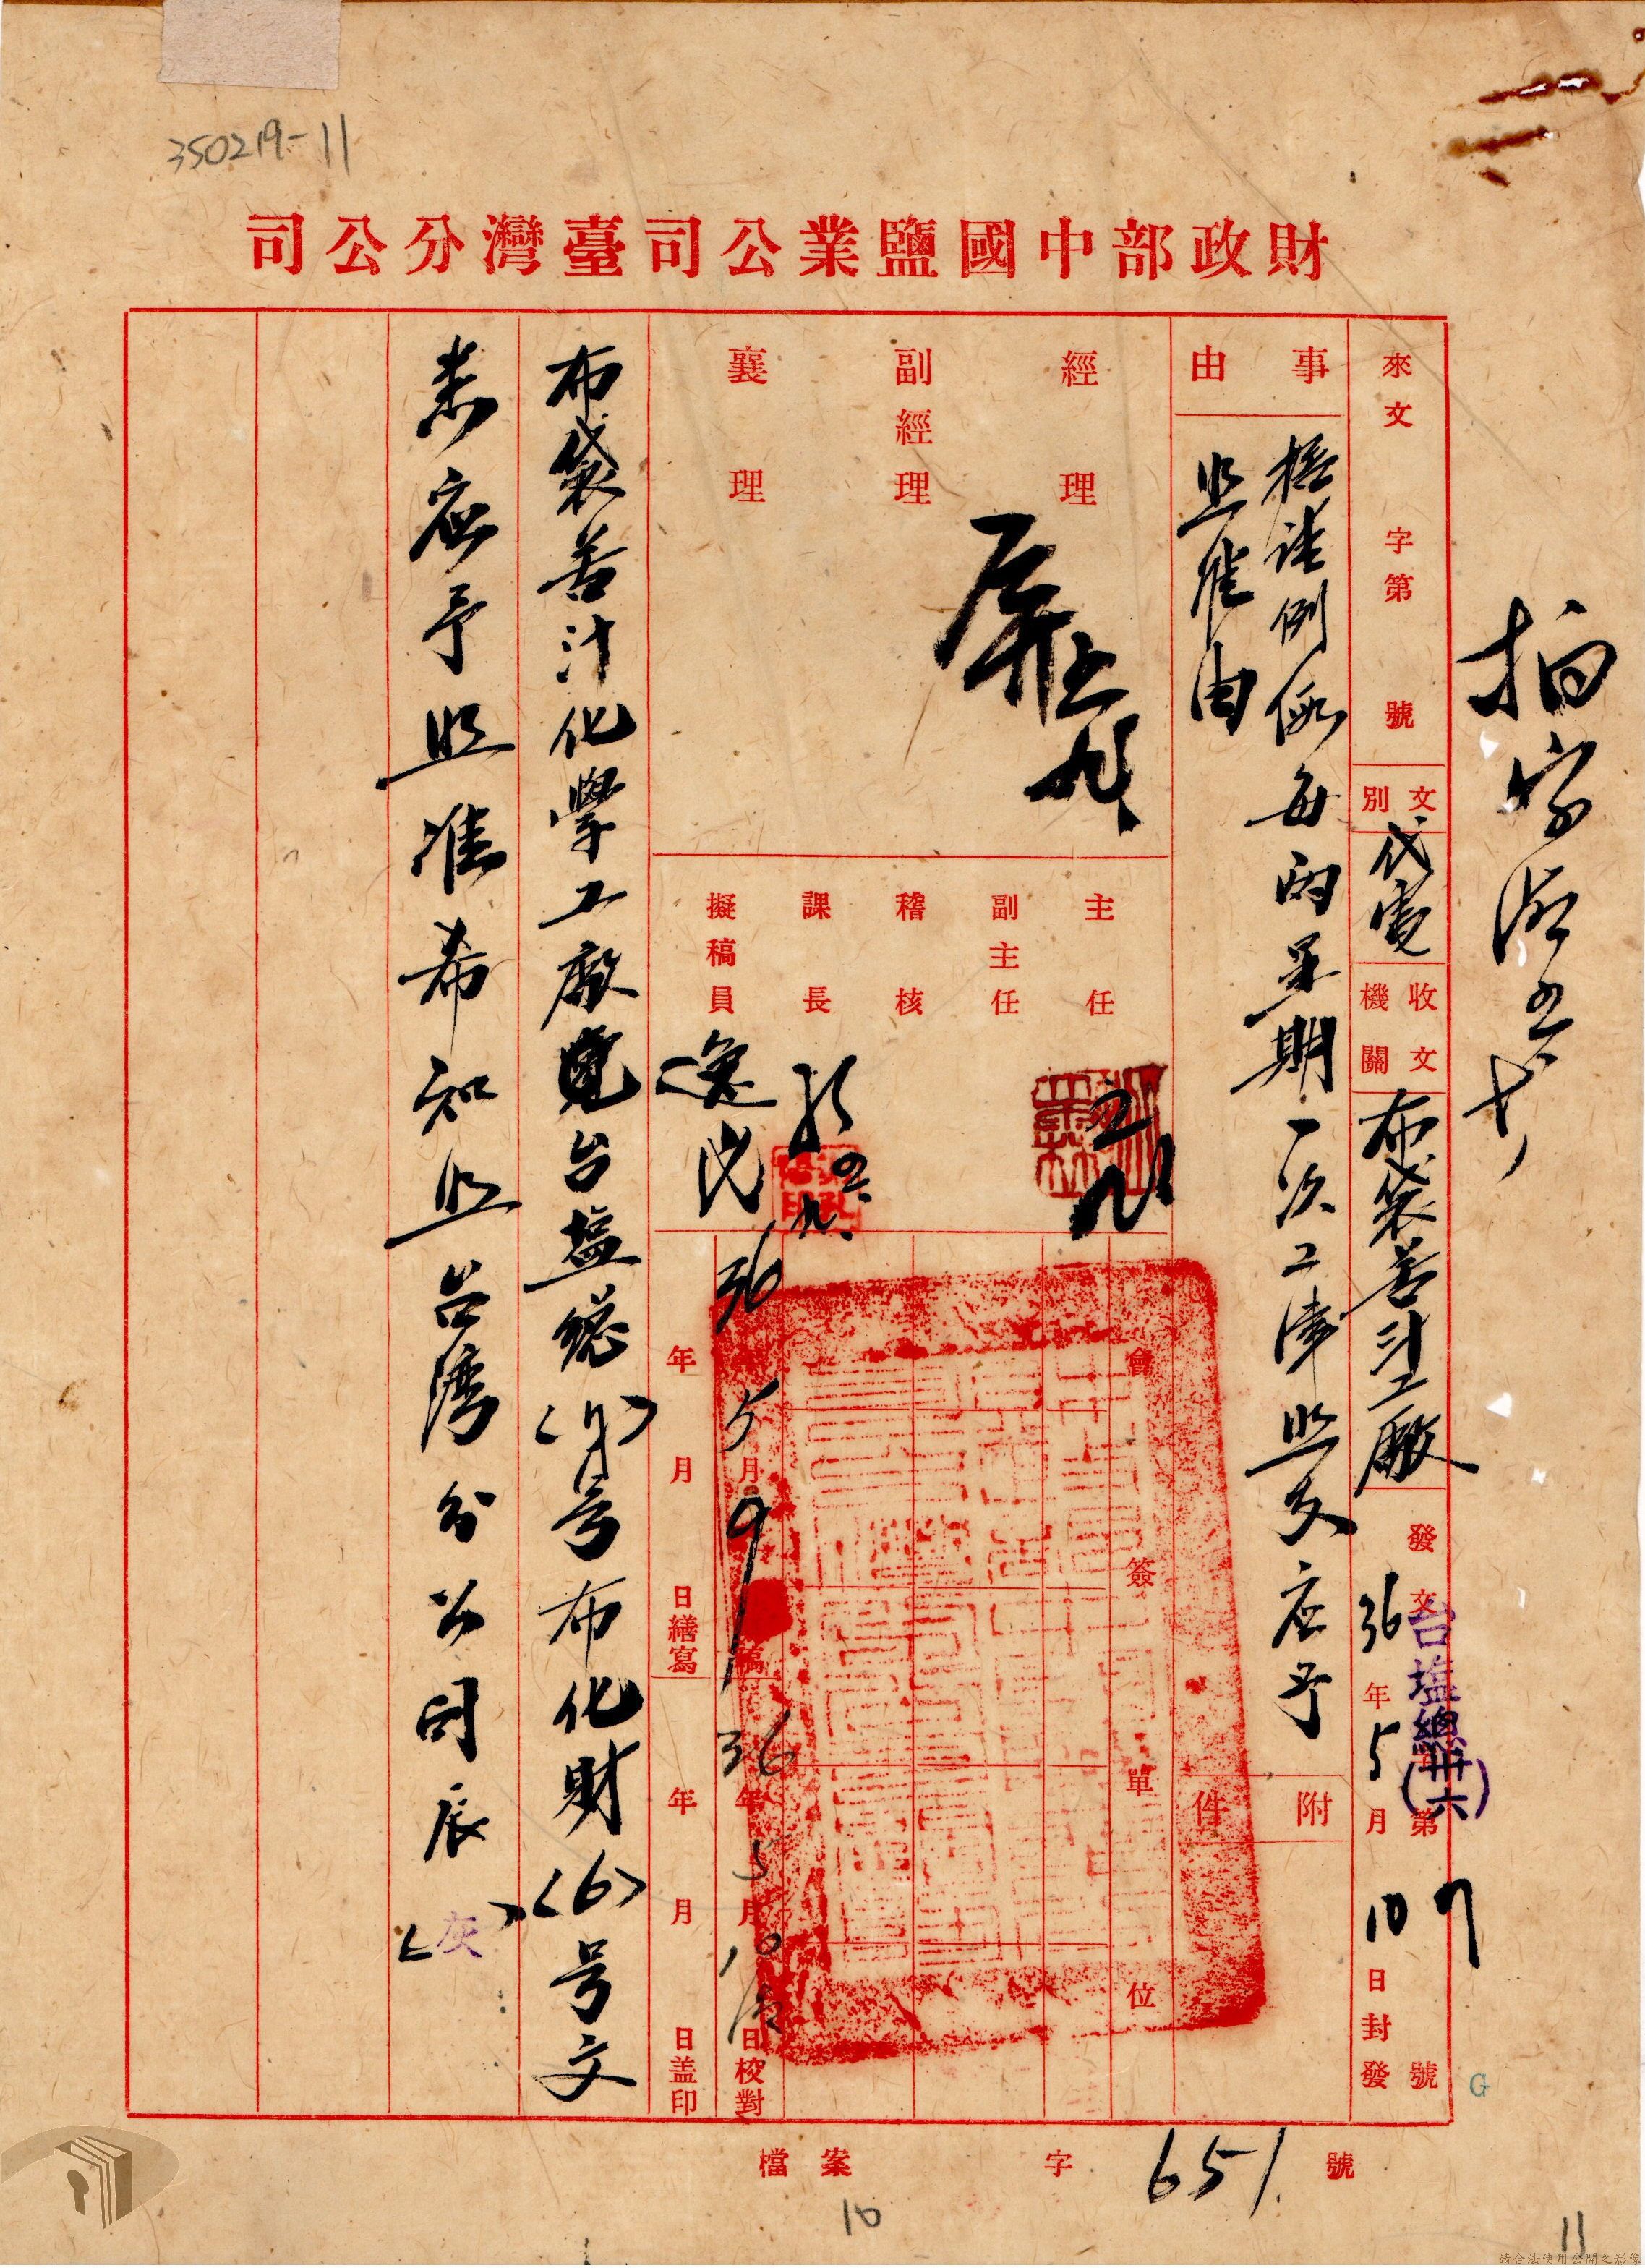 350219-11
財政部中國鹽業公司臺灣分公司
來文 字第 號
文別 代電
收文機關 布袋苦汁工廠
發文 36年5月10日封發
台塩總(卅六)第 號
事由
據請例假每兩星期一次工津照支應予
照准由
附件
經理
副經理
襄理
主任
副主任
稽核
課長
擬稿員
會簽單位
36年5月9日 稿
年 月 日繕寫
36年5月10日校對
年 月 日蓋印
布袋苦汁化學工廠覽台塩總 号布化財(6)号文
悉應予照准希知照台灣分公司辰(灰)
檔案 字 651 號
10
11
G
請合法使用公開之影像